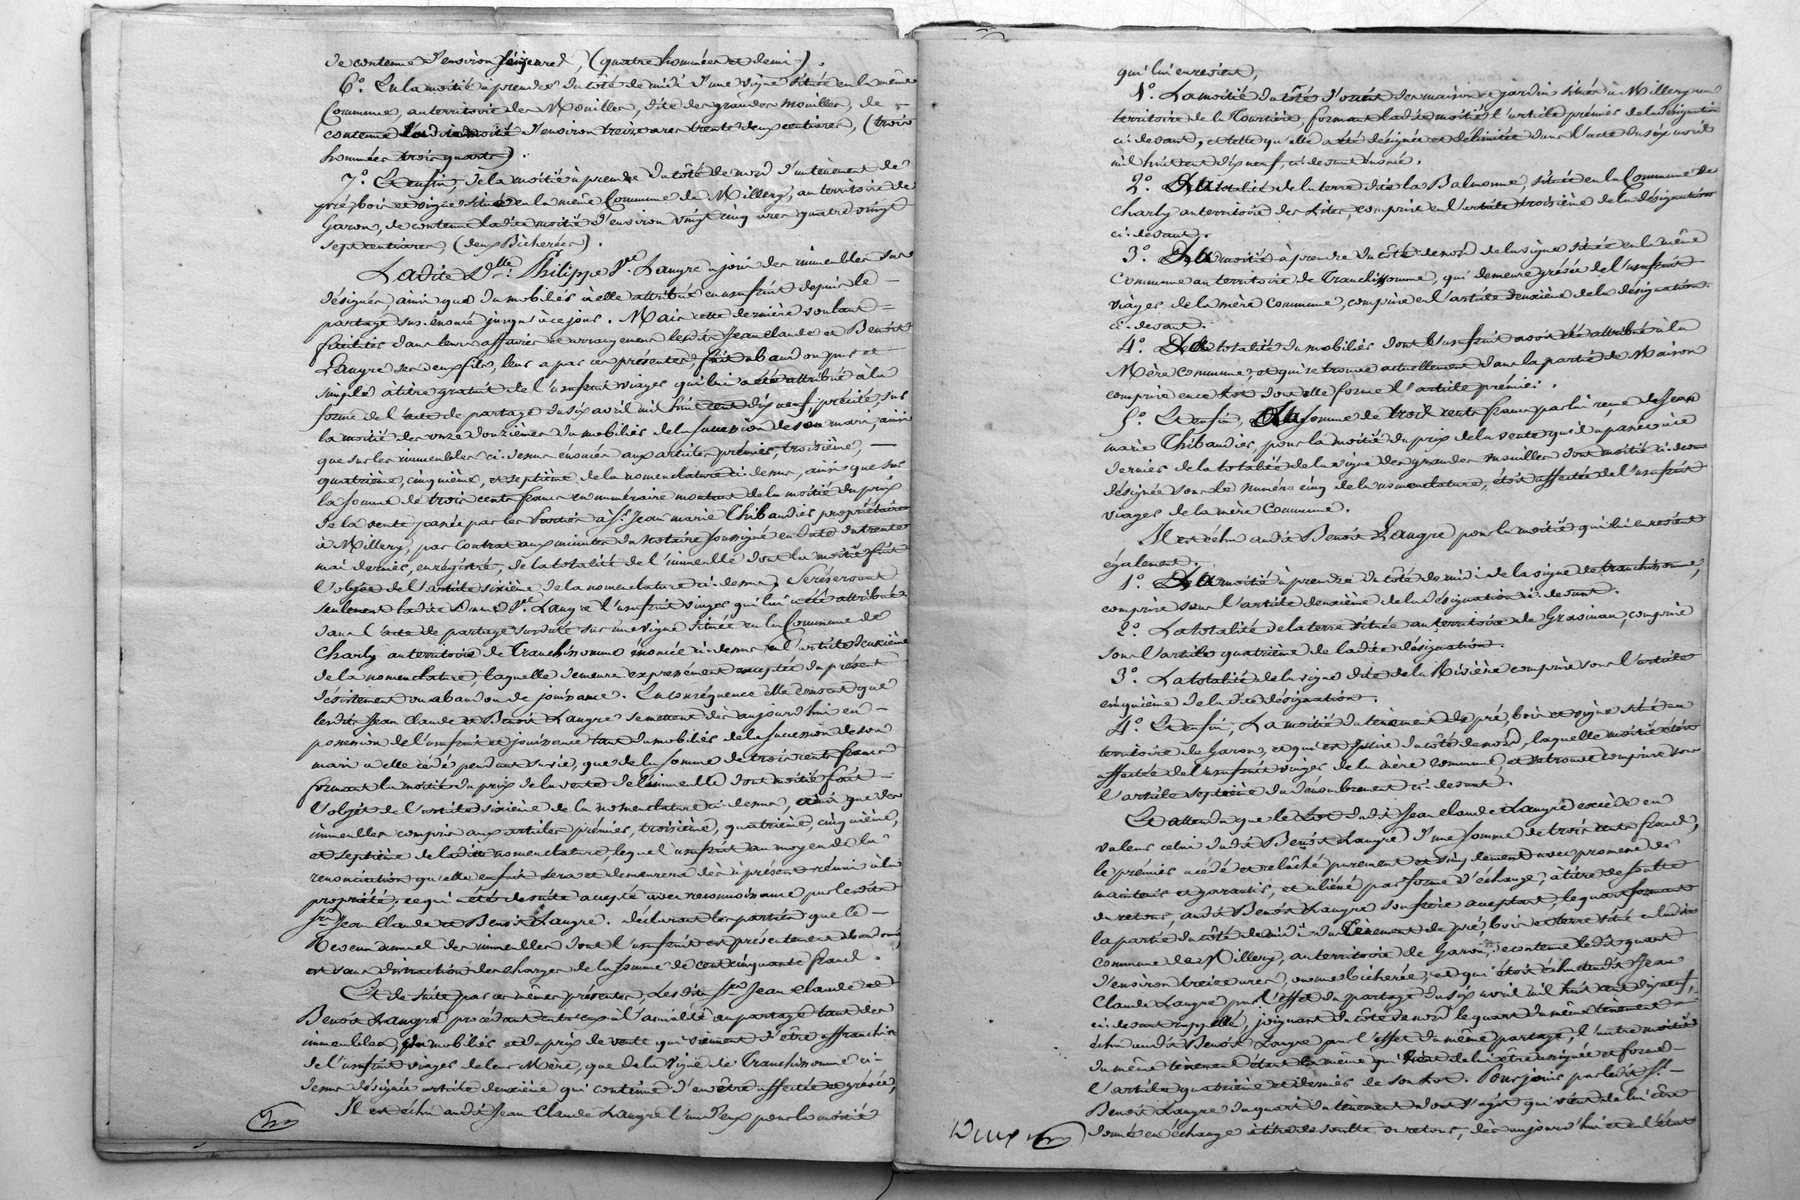 de contenue d'environ seize ares, (quatre hommées et demi).
6.o Et la moitié à prendre du côté de midi d'une vigne située en la même
Commune, au territoire des Mouilles, dite des grandes mouilles, de
contenue ladite moitié d'environ treize ares trente deux centiares, (trois
hommées trois quarts).
7.o Et enfin, de la moitié à prendre du côté de nord d'un tènement de
pré, bois et vigne située en la même Commune de Millery, au territoire de
Garon, de contenue ladite moitié d'environ vingt cinq ares quatre vingt
sept centiares, (deux Bicherées).
Ladite D.lle Philippe V.e Laugre a joui des immeubles sus
désignés ainsi que du mobilier à elle attribué en usufruit depuis le
partage sus-énoncé jusqu'à ce jour. Mais cette dernière voulant
faciliter dans leurs affaires et arrangement lesdits Jean Claude et Benoît
Laugre ses deux fils, leur a par ces présentes fait abandon pur et
simple à titre gratuit de l'usufruit viager qui lui a été attribué à la
forme de l'acte de partage du six avril mil huit cent dix neuf, précité sur
la moitié des onze douzièmes du mobilier de la succession de son mari, ainsi
que sur les immeubles ci-dessus énoncés aux articles premier, troisième,
quatrième, cinquième, et septième de la nomenclature ci-dessus, ainsi que sur
la somme de trois cents francs en numéraire montant de la moitié du prix
de la vente passée par les parties à S.r Jean marie Thibaudier propriétaire
à Millery, par contrat aux minutes du Notaire soussigné en date du trente
mai dernier, enregistré, de la totalité de l'immeuble dont la moitié fait
l'objet de l'article sixième de la nomenclature ci-dessus. Se réservant
seulement ladite Dame V.e Laugre l'usufruit viager qui lui a été attribué
dans l'acte de partage susdaté sur une vigne située en la Commune de
Charly au territoire de Tranchissomme énoncée ci-dessus en l'article deuxième
de la nomenclature, laquelle demeure expressément exceptée du présent
désistement ou abandon de jouissance. En conséquence elle consent que
lesdits Jean Claude et Benoît Laugre se mettent dès aujourd'hui en
possession de l'usufruit et jouissance tant du mobilier de la succession de son
mari à elle cédé pendant sa vie, que de la somme de trois cents francs
formant la moitié du prix de la vente de l'immeuble dont moitié fait
l'objet de l'article sixième de la nomenclature ci-dessus, ainsi que des
immeubles compris aux articles premier, troisième, quatrième, cinquième,
et septième de ladite nomenclature, lequel usufruit au moyen de la
renonciation qu'elle en fait sera et demeurera dès à présent réuni à la
propriété; ce qui a été de suite accepté avec reconnaissance par lesdits
S.rs Jean Claude et Benoît Laugre. déclarant les parties que le
Revenu annuel des immeubles dont l'usufruit est présentement abandonné,
est sans distraction des charges de la somme de cent cinquante francs.
Et de suite par ces mêmes présentes, Lesdits S.rs Jean Claude et
Benoît Laugre procédant entr'eux à l'amiable au partage tant des
immeubles, du mobilier et du prix de vente qui viennent d'être affranchis
de l'usufruit viager de leur Mère, que de la Vigne de Tranchissomme ci-
dessus désignée article deuxième qui continue d'en être affectée et grévée,
Il est échu audit Jean Claude Laugre l'un d'eux pour la moitié
qui lui en revient,
1.o La moitié du côté d'orient des maison et jardin situés à Millery au
territoire de la Tourtière, formant ladite moitié l'article premier de la désignation
ci-devant, et telle qu'elle a été désignée et délimitée dans l'acte du six avril
mil huit cent dix neuf, ci-devant énoncé.
2.o La totalité de la terre dite la Balmonne, située en la Commune de
Charly au territoire des Lites, comprise en l'article troisième de la désignation
ci-devant.
3.o La moitié à prendre du côté de nord de la vigne située en la même
Commune au territoire de Tranchissomme, qui demeure grévée de l'usufruit
viager de la mère commune, comprise en l'article deuxième de la désignation
ci-devant.
4.o La totalité du mobilier dont l'usufruit avoit été attribué à la
Mère commune, et qui se trouve actuellement dans la partie de Maison
comprise en ce lot dont elle forme l'article premier.
5.o Et enfin, La somme de trois cents francs par lui reçue de Jean
marie Thibaudier, pour la moitié du prix de la vente qu'il a passée à ce
dernier de la totalité de la vigne des grandes mouilles dont moitié ci-dessus
désignée sous le numéro cinq de la nomenclature, étoit affectée de l'usufruit
viager de la mère Commune.
Il est échu audit Benoît Laugre pour la moitié qui lui en revient
également.
1.o La moitié à prendre du côté de midi de la vigne de tranchissomme,
comprise sous l'article deuxième de la désignation ci-devant.
2.o La totalité de la terre située au territoire de Grasinan, comprise
sous l'article quatrième de ladite désignation.
3.o La totalité de la vigne dite de la Rivière comprise sous l'article
cinquième de ladite désignation.
4.o Et enfin, La moitié du tènement de pré, bois et vigne situé au
territoire de Garon, et qui est prise du côté de nord, laquelle moitié étoit
affectée de l'usufruit viager de la mère commune et se trouve comprise sous
l'article septième du dénombrement ci-devant.
Et attendu que le Lot dudit Jean Claude Laugre excède en
valeur celui dudit Benoît Laugre d'une somme de trois cents francs,
le premier a cédé et relâché purement et simplement avec promesse de
maintenir et garantir, et aliéné par forme d'échange, à titre de soulte
ou retour, audit Benoît Laugre son frère acceptant, le quart formant
la partie du côté de midi du tènement de pré, bois et terre situé en ladite
commune de Millery, au territoire de Garon, de contenue ledit quart
d'environ treize ares, ou une bicherée, et qui étoit échu audit Jean
Claude Laugre par l'effet du partage du six avril mil huit cent dix neuf,
ci-devant rappelé, joignant du côté de nord le quart du même tènement
échu audit Benoît Laugre par l'effet du même partage, l'autre moitié
du même tènement étant la même qui vient de lui être assignée et forme
l'article quatrième et dernier de son lot. Pour jouir par ledit S.r
Benoît Laugre du quart du tènement dont s'agit qui vient de lui être
donné en échange à titre de soulte ou retour, dès aujourd'hui et en l'état